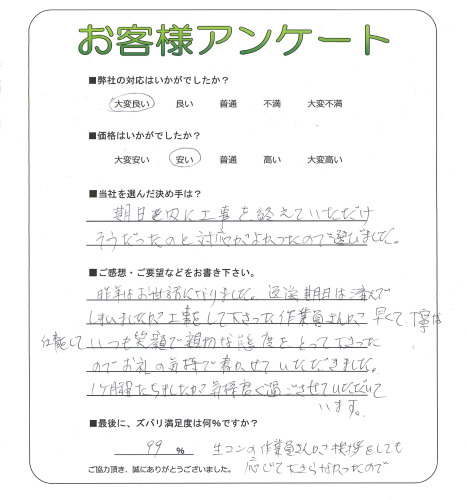 お客様アンケート
■弊社の対応はいかがでしたか?
大変良い 良い 普通 不満 大変不満
■価格はいかがでしたか?
大変安い 安い 普通 高い 大変高い
■当社を選んだ決め手は?
期日迄内に工事を終えていただけ
そうだったのと対応がよかったので選びました。
■ご感想・ご要望などをお書き下さい。
昨年はお世話になりました。返送期日は済んで
しまいましたが工事をして下さった作業員さんが早くて丁寧な
仕事をして いつも笑顔で親切な態度をとって下さった
のでお礼の気持で書かせていただきました。
1ヶ月程たちましたが気持良く過ごさせていただいて
います。
■最後に、ズバリ満足度は何%ですか?
99 % 生コンの作業員さんが挨拶をしても
ご協力頂き、誠にありがとうございました。 応じて下さらなかったので